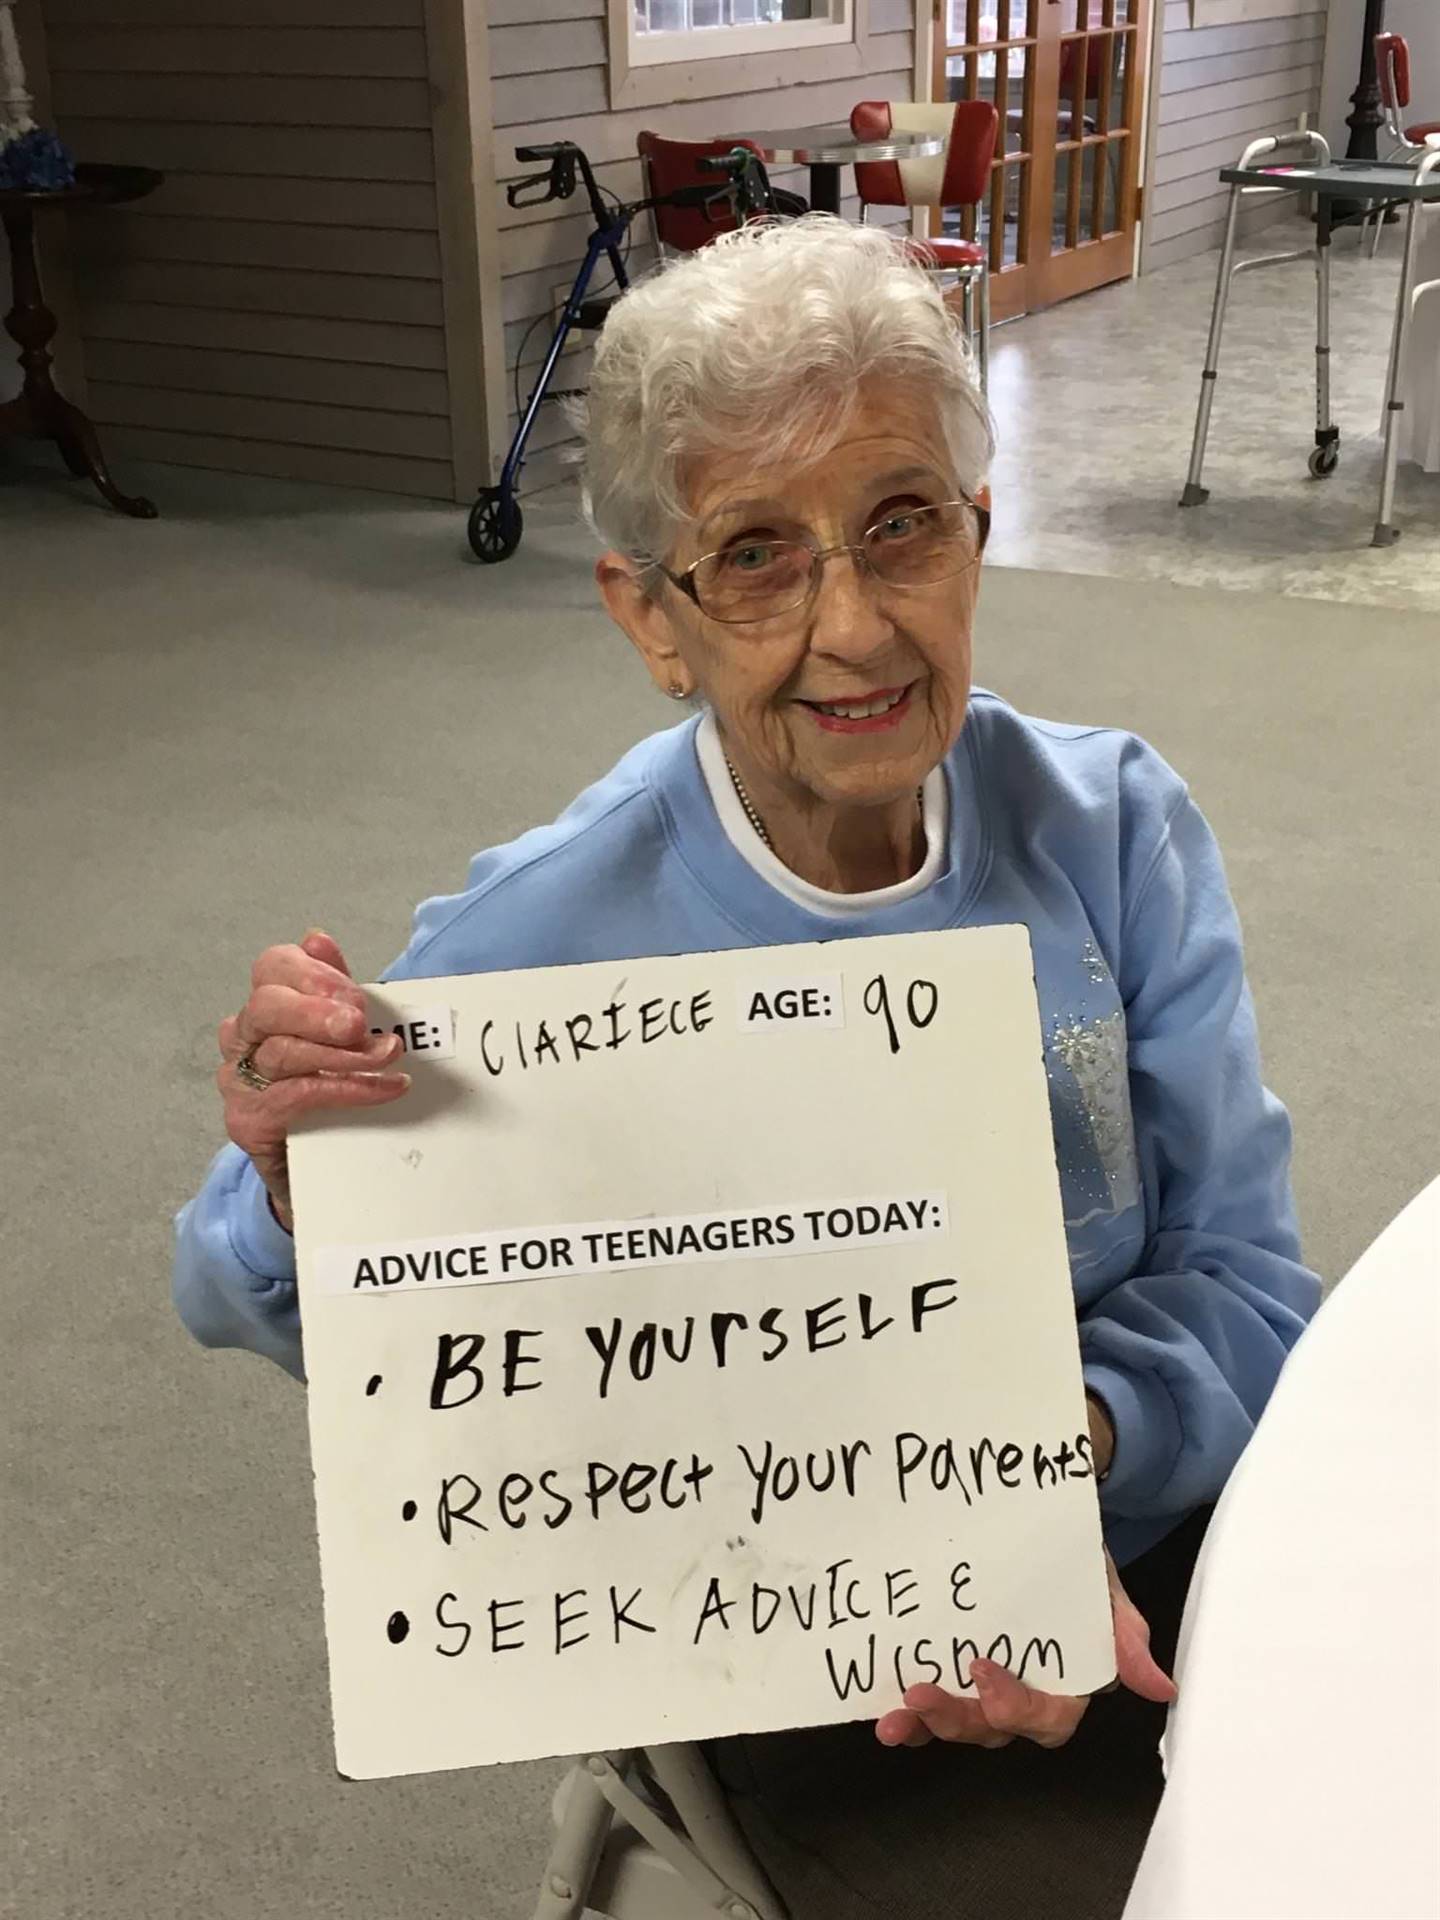 ME: CIARIECE AGE: 90
ADVICE FOR TEENAGERS TODAY:
• BE YOURSELF
• Respect Your Parents
• SEEK ADVICE &
WISDOM